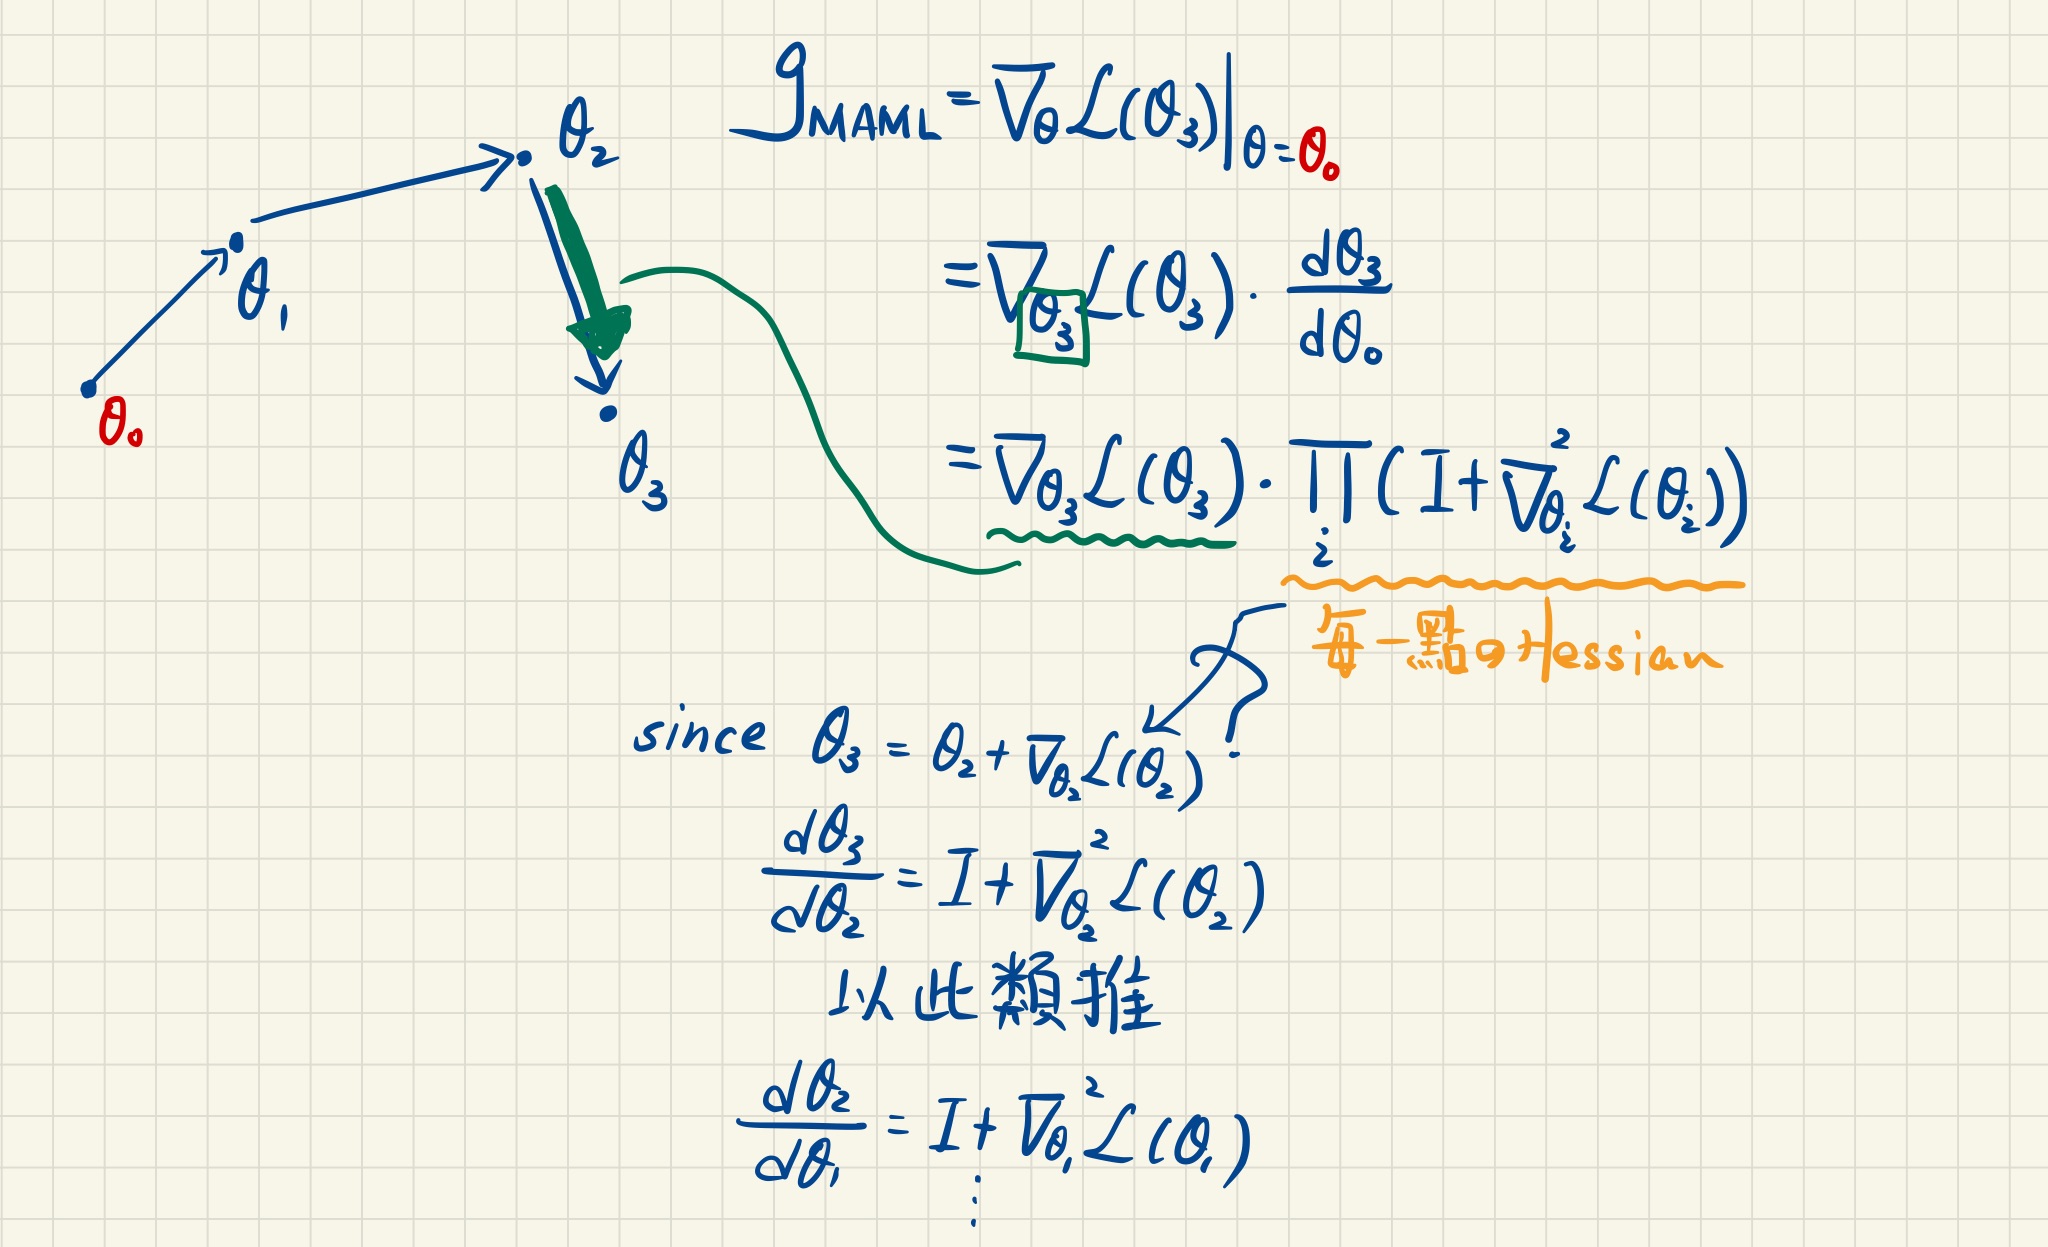 g_MAML = ∇_θ L(θ₃) |_θ=θ₀
= ∇_θ₃ L(θ₃) · dθ₃/dθ₀
= ∇_θ₃ L(θ₃) · ∏_i ( I + ∇²_θᵢ L(θᵢ))
每一點のHessian
θ₂
θ₁
θ₀
θ₃
?
since θ₃ = θ₂ + ∇_θ₂ L(θ₂)
dθ₃/dθ₂ = I + ∇²_θ₂ L(θ₂)
以此類推
dθ₂/dθ₁ = I + ∇²_θ₁ L(θ₁)
⋮